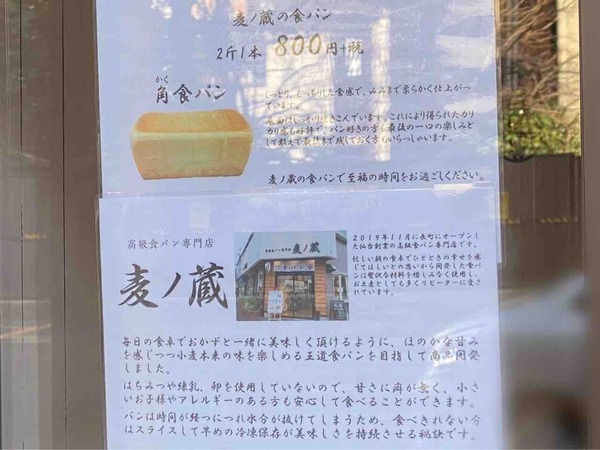 麦ノ蔵の食パン
2斤1本 800円+税
かく
角食パン
しっとり、もっちりした食感で、みみまで柔らかく仕上がっ
ています。
底面はしっかり焼きこんでいます。これにより得られたカリ
カリ感も好評で、パン好きの方も最後の一口の楽しみと
して敢えて最後まで残しておく方もいらっしゃいます。
麦ノ蔵の食パンで至福の時間をお過ごしください。
高級食パン専門店
麦ノ蔵
麦ノ蔵
2019年11月に長町にオープンし
た仙台創業の高級食パン専門店です。
忙しい朝の食卓でひとときの幸せを感
じてほしいとの思いから開発した食パ
ンは贅沢な材料を惜しみなく使用し、
お土産としても多くリピーターに愛さ
れています。
毎日の食卓でおかずと一緒に美味しく頂けるように、ほのかな甘み
を感じつつ小麦本来の味を楽しめる王道食パンを目指して商品開発
しました。
はちみつや練乳、卵を使用していないので、甘さに癖が無く、小さ
いお子様やアレルギーのある方も安心して食べることができます。
パンは時間が経つにつれ水分が抜けてしまうため、食べきれない分
はスライスして早めの冷凍保存が美味しさを持続させる秘訣です。